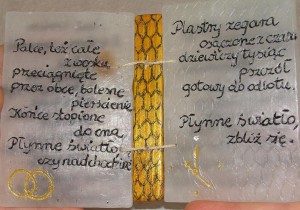 Palce, też całe
z wosku,
przeciągnięte
przez obce, bolesne
pierścienie.
Końce stopione
do cna.
Płynne światło,
czy nadchodzisz
Plastry zegara
osączone z czasu
dziewiczy tysiąc
pszczół
gotowy do odlotu.
Płynne światło,
zbliż się.